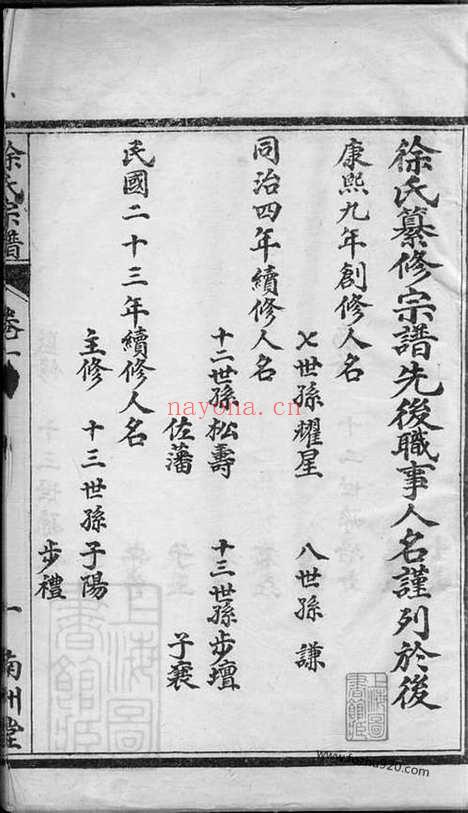 徐氏纂修宗譜先後職事人名謹列於後
康熙九年創修人名
七世孫耀星 八世孫謙
同治四年續修人名
十二世孫松壽 十三世孫步壇
佐藩 子襄
民國二十三年續修人名
主修 十三世孫子陽
步禮
徐氏宗譜 卷一 一 南州堂
nayona.cn
上海圖書館藏
上海圖書館藏
www.fozhu920.com